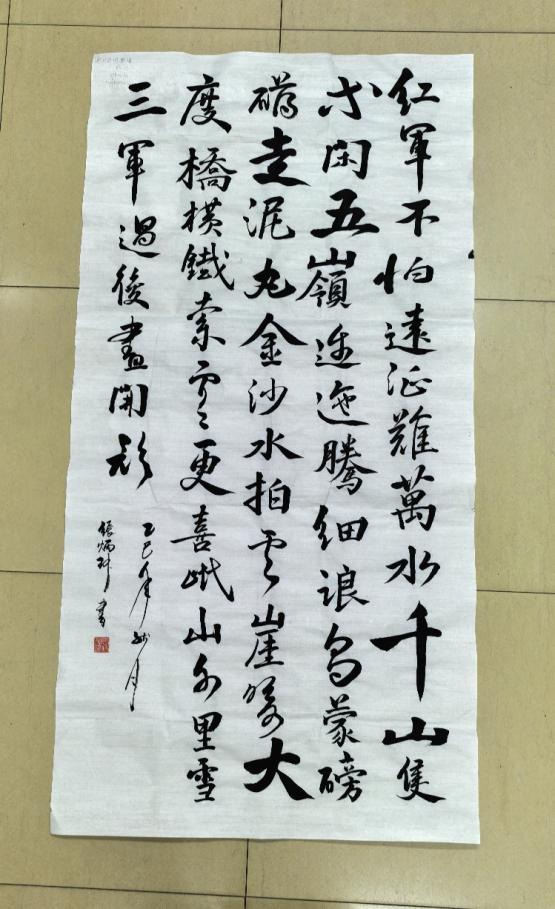 红軍不怕遠征難萬水千山隻
等閑五嶺逶迤騰细浪烏蒙磅
礴走泥丸金沙水拍雲崖暖大
度橋横鐵索寒更喜岷山千里雪
三軍過後盡開颜
乙巳年月
張炳書